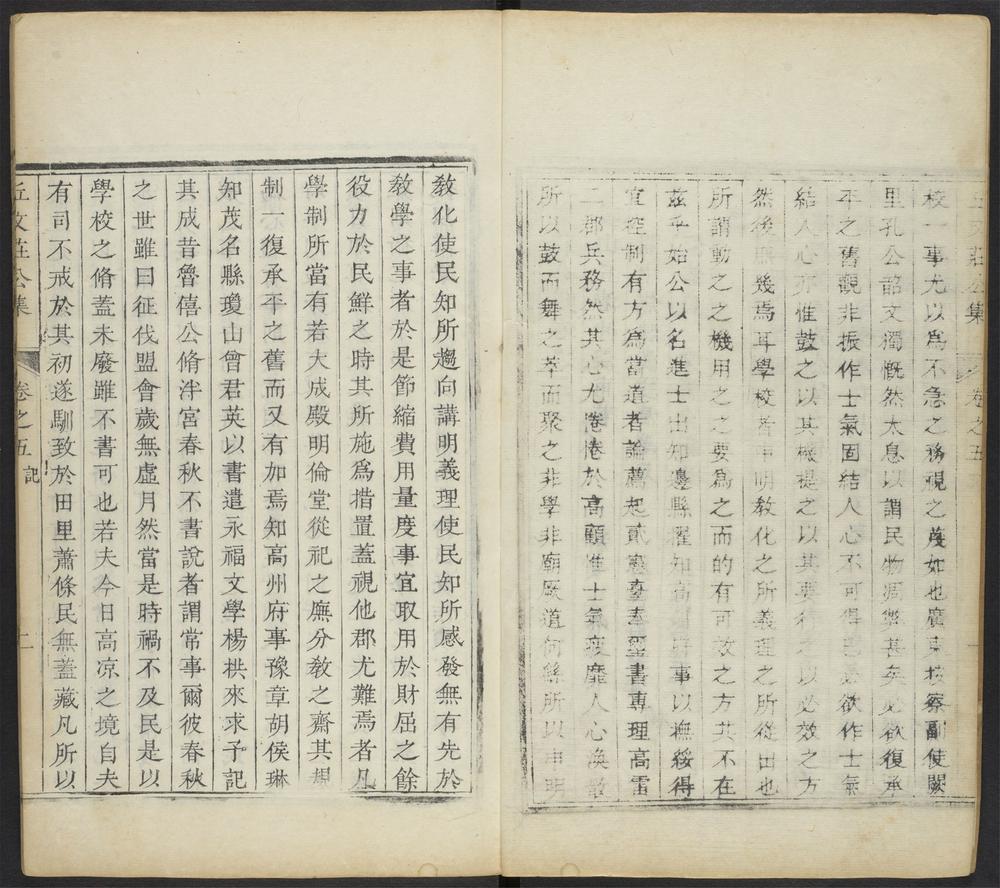 丘文莊公集 卷之五
校一事尤以為不急之務視之蔑如也廣東按察副使闕
里孔公韶文獨慨然太息以謂民物凋弊甚矣必欲復承
平之舊觀非振作士氣固結人心不可得已必欲作士氣
結人心亦惟鼓之以其機提之以其要 之以必效之方
然後 幾焉耳學校者申明教化之所義理之所從出也
所謂動之之機用之之要為之而的有可效之方其不在
茲乎始公以名進士出知邊縣擢知高州府事以撫綏得
宜控制有方為當道者論薦起貳憲臺奉璽書專理高雷
二郡兵務然其心尤惓惓於高顧惟士氣 靡人心渙散
所以鼓而舞之萃而聚之非學非廟厥道何繇所以申明
教化使民知所趨向講明義理使民知所感發無有先於
教學之事者於是節縮費用量度事宜取用於財屈之餘
役力於民鮮之時其所施為措置蓋視他郡尤難焉者凡
學制所當有若大成殿明倫堂從祀之廡分教之齋其規
制一復承平之舊而又有加焉知高州府事豫章胡侯琳
知茂名縣瓊山曾君英以書遣永福文學楊栱來求予記
其成昔魯僖公脩泮宮春秋不書說者謂常事爾彼春秋
之世雖曰征伐盟會歲無虛月然當是時禍不及民是以
學校之脩蓋未廢雖不書可也若夫今日高涼之境自夫
有司不戒於其初遂馴致於田里蕭條民無蓋藏凡所以
丘文莊公集 卷之五 記 二